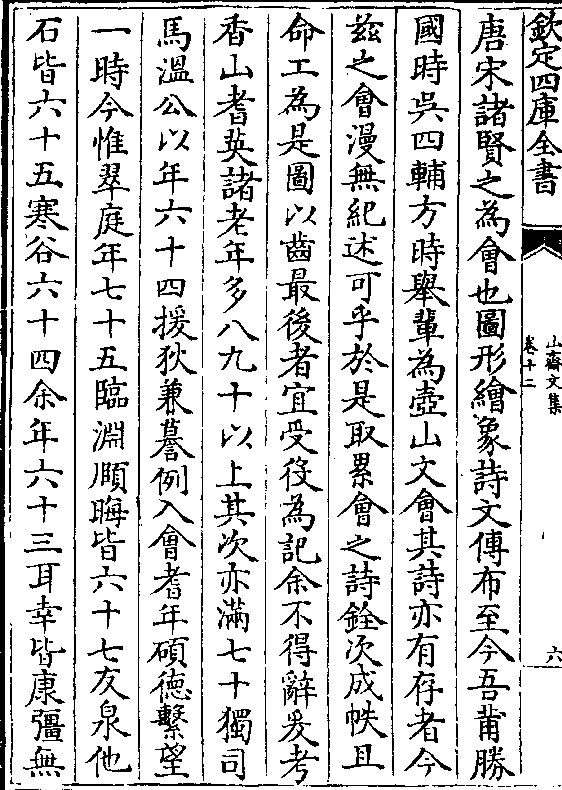 欽定四庫全書
山齋文集
卷十二
六
唐宋諸賢之為會也圖形繪象詩文傳布至今吾莆勝
國時吳四輔方時舉輩為壺山文會其詩亦有存者今
兹之會漫無紀述可乎於是取累會之詩銓次成帙且
命工為是圖以齒最後者宜受役為記余不得辭爰考
香山耆英諸老年多八九十以上其次亦滿七十獨司
馬溫公以年六十四援狄兼謩例入會耆年碩德繫望
一時今惟翠庭年七十五臨淵順晦皆六十七友泉他
石皆六十五寒谷六十四余年六十三耳幸皆康彊無